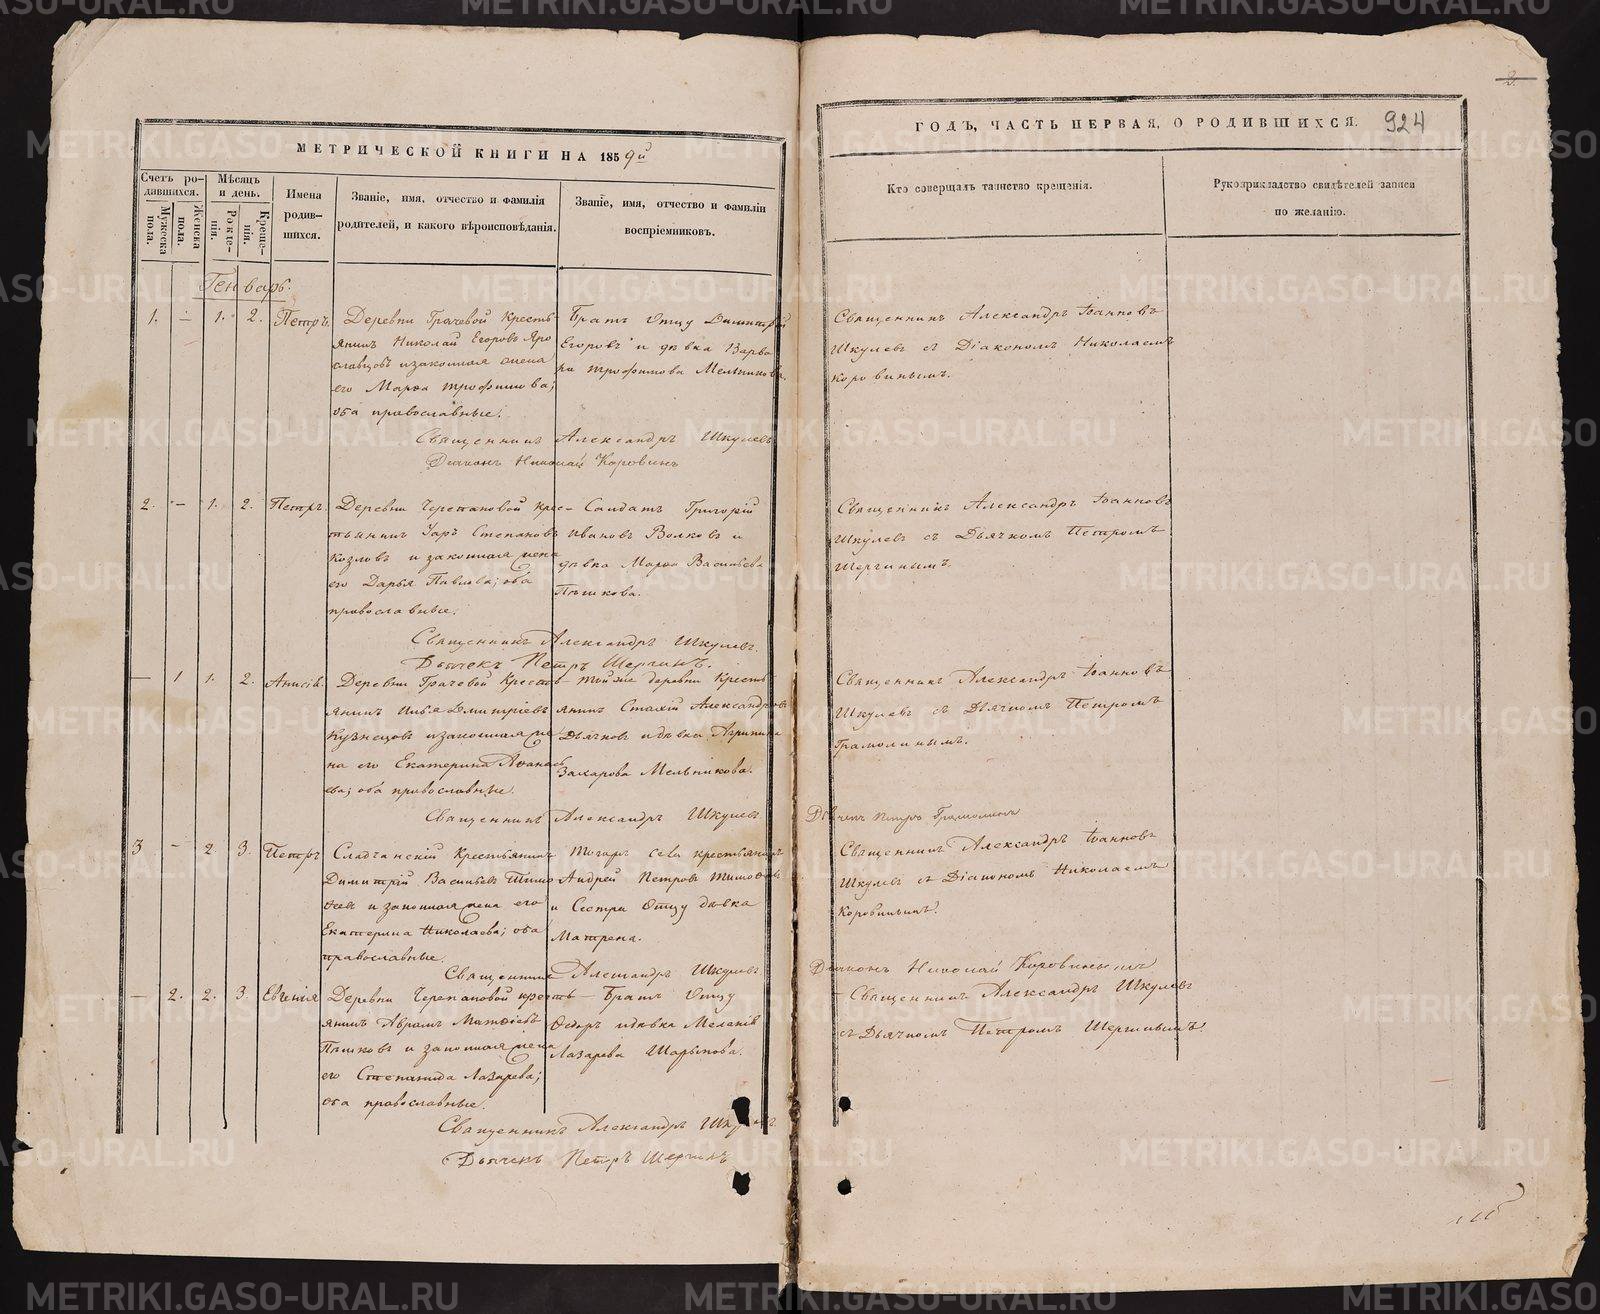 МЕТРИЧЕСКОЙ КНИГИ НА 1859й
ГОДЪ, ЧАСТЬ ПЕРВАЯ, О РОДИВШИХСЯ.
924
Счетъ ро-
дившихся.
Мужеска
пола.
Женска
пола.
Мѣсяцъ
и день.
Рожде-
нія.
Креще-
нія.
Имена
родив-
шихся.
Званіе, имя, отчество и фамилія
родителей, и какого вѣроисповѣданія.
Званіе, имя, отчество и фамиліи
воспріемниковъ.
Кто совершалъ таинство крещенія.
Рукоприкладство свидѣтелей записи
по желанію.
Генварь.
1. — 1. 2. Петръ.
Деревни Грачевой кресть-
янинъ Николай Егоровъ Яро
славцовъ и законная жена
его Марѳа Трофимова;
оба православные.
Братъ отцу Димитрій
Егоровъ и дѣвка Варва
ра Трофимова Мельникова.
Священникъ Александръ Іоанновъ
Шкулевъ съ Діакономъ Николаемъ
Коровинымъ.
Священникъ Александръ Шкулевъ
Діаконъ Николай Коровинъ
2. — 1. 2. Петръ.
Деревни Черепановой крес-
тьянинъ Уаръ Степановъ
Козловъ и законная жена
его Дарья Павлова; оба
православные.
Солдатъ Григорій
Ивановъ Волковъ и
дѣвка Марѳа Васильева
Пѣшкова.
Священникъ Александръ Іоанновъ
Шкулевъ съ Дьячкомъ Петромъ
Шергинымъ.
Священникъ Александръ Шкулевъ.
Дьячекъ Петръ Шергинъ.
— 1 1. 2. Анисія.
Деревни Грачевой Кресть-
янинъ Илья Димитріевъ
Кузнецовъ и законная же
на его Екатерина Аѳанась
ева; оба православные.
Той же деревни Кресть
янинъ Стахій Александровъ
Дьячковъ и дѣвка Агрипина
Захарова Мельникова.
Священникъ Александръ Іоанновъ
Шкулевъ съ Дьячкомъ Петромъ
Грамолинымъ.
Священникъ Александръ Шкулевъ
Дьячекъ Петръ Грамолинъ
3 — 2. 3. Петръ
Сладчанскій Крестьянинъ
Димитрій Васильевъ Тимо
ѳеевъ и законная жена его
Екатерина Николаева; оба
православные.
Тогожъ села крестьянинъ
Андрей Петровъ Тимоѳеевъ
и Сестра Отцу дѣвка
Матрена.
Священникъ Александръ Іоанновъ
Шкулевъ съ Діакономъ Николаемъ
Коровинымъ.
Священникъ Александръ Шкулевъ
Діаконъ Николай Коровинъ
— 2. 2. 3. Евгенія
Деревни Черепановой кресть-
янинъ Аврамъ Матѳіевъ
Пѣшковъ и законная жена
его Степанида Лазарева;
оба православные.
Братъ отцу
Ѳедоръ и дѣвка Меланія
Лазарева Шарыпова.
Священникъ Александръ Шкулевъ
съ Дьячкомъ Петромъ Шергинымъ.
Священникъ Александръ Шкулевъ.
Дьячекъ Петръ Шергинъ
METRIKI.GASO-URAL.RU